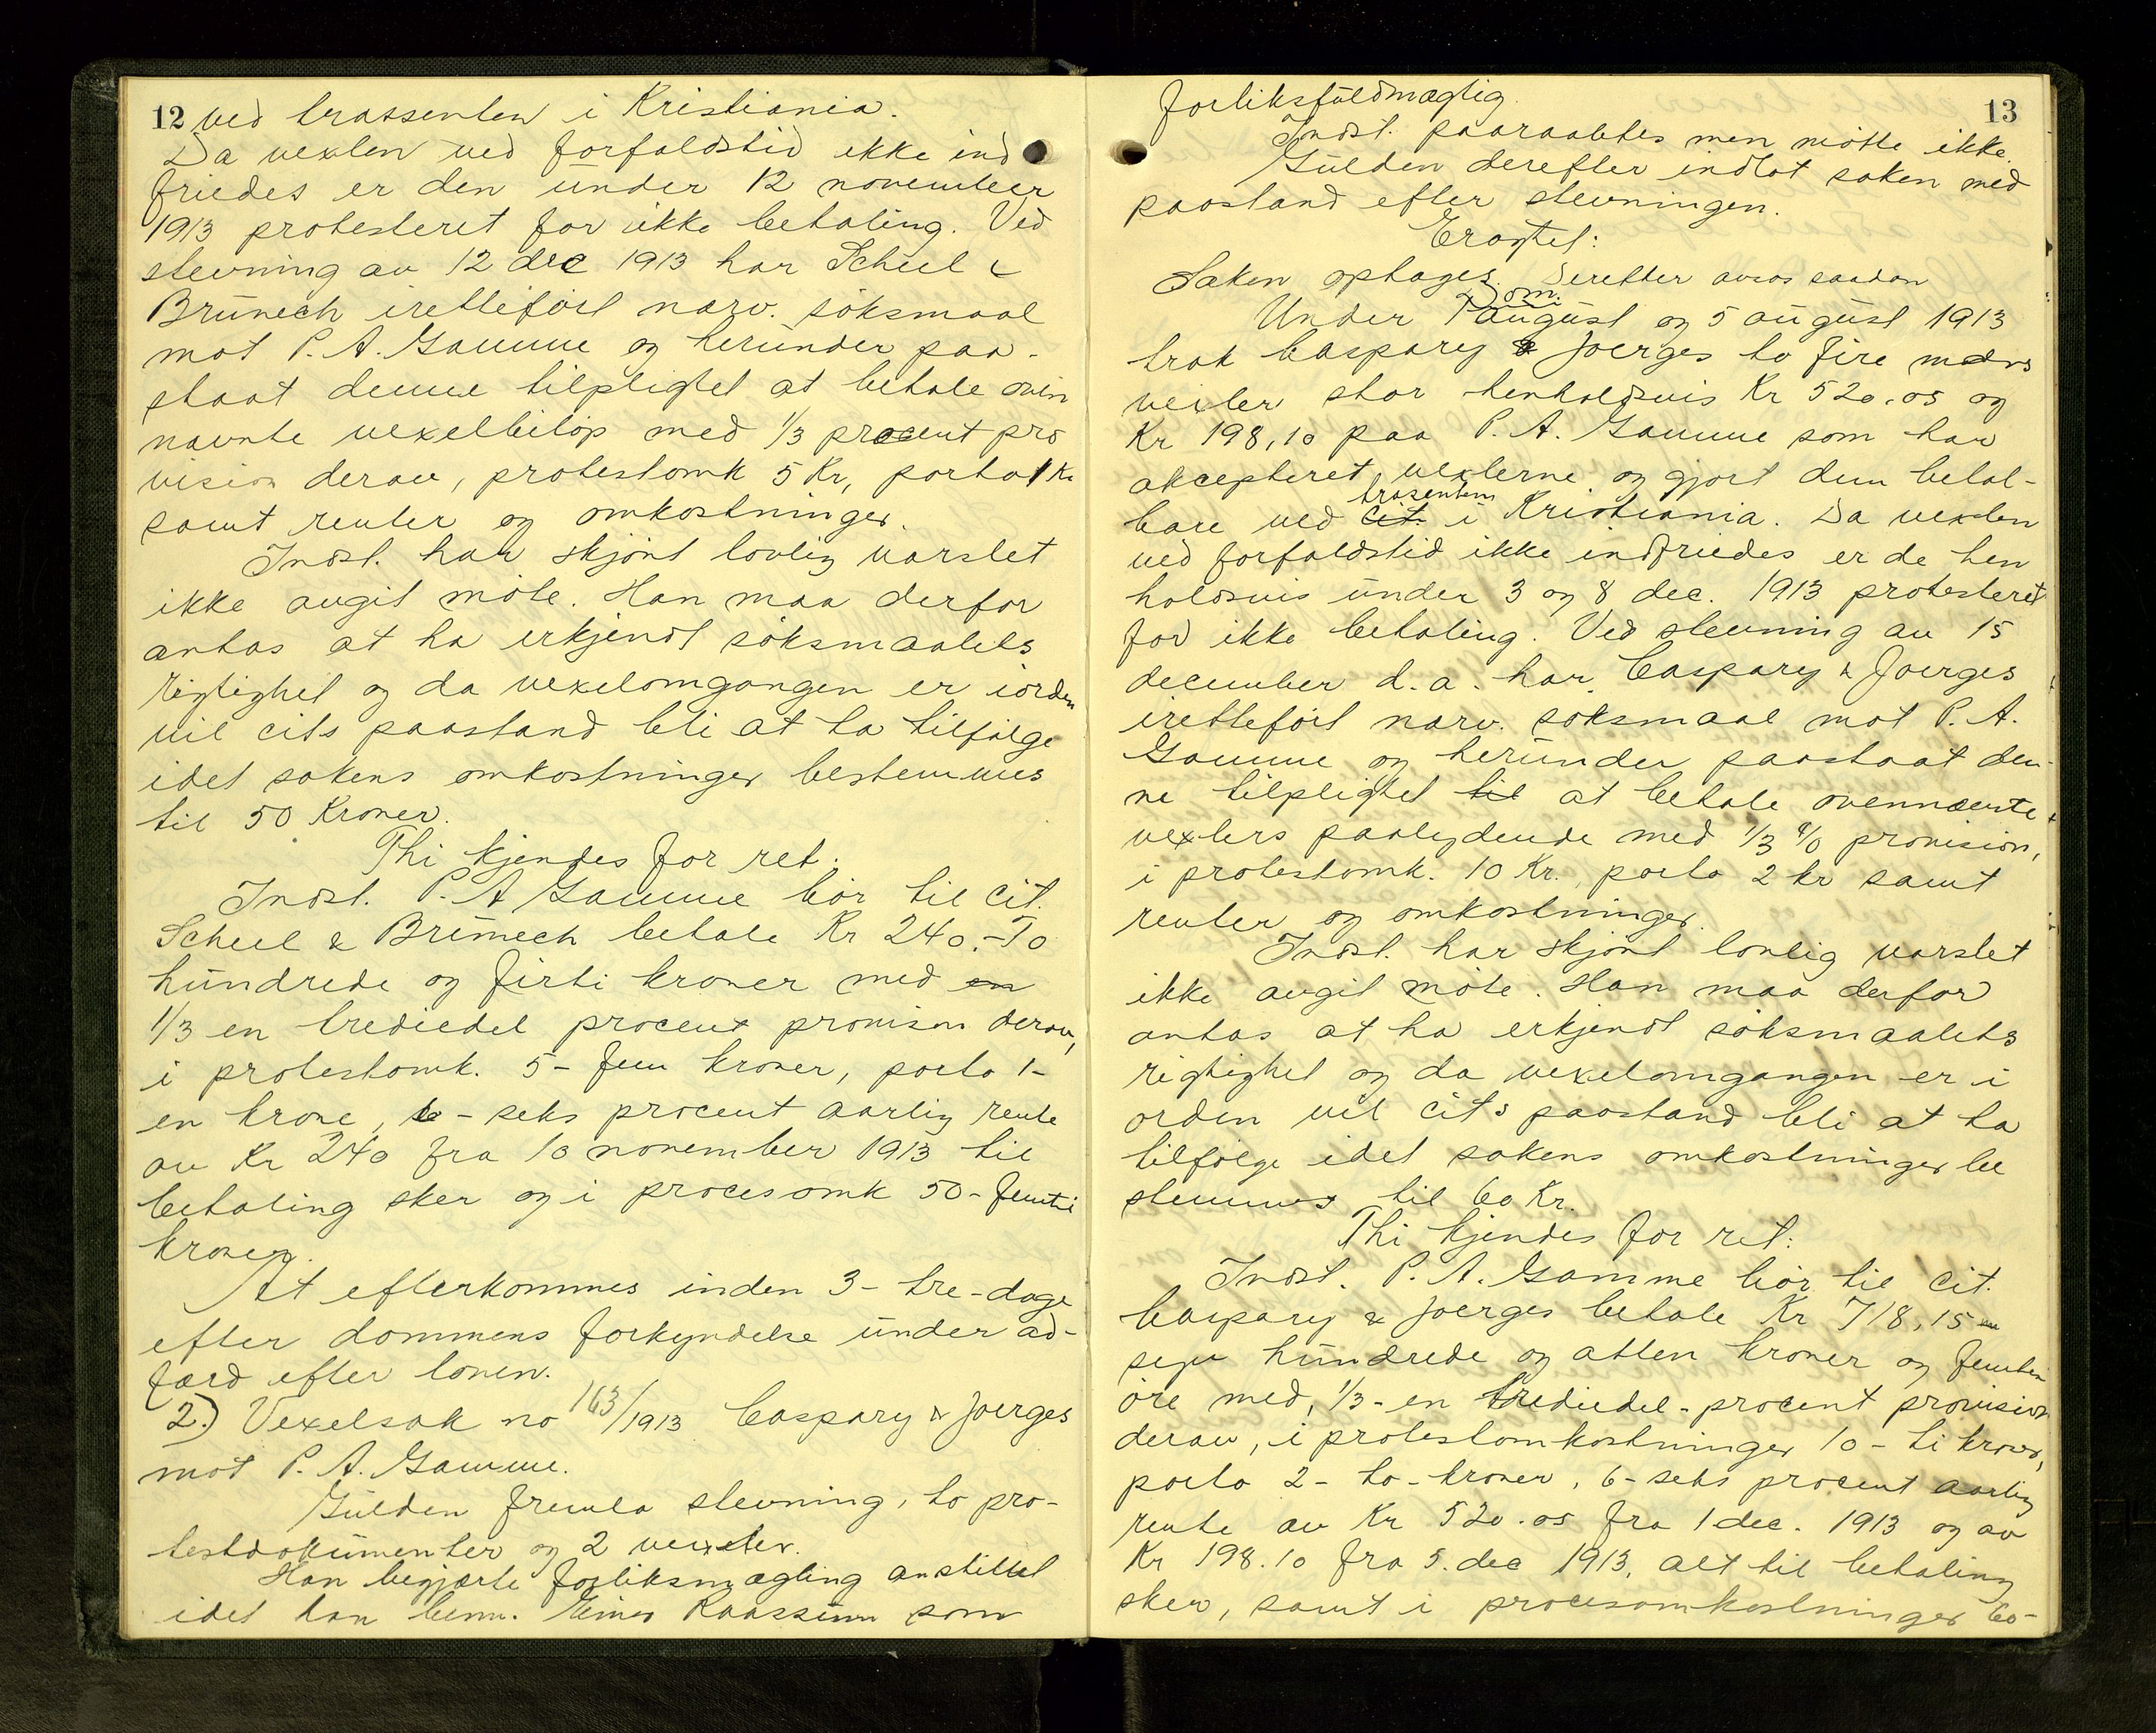 12 ved trassenten i Kristiania.
Da vexlen ved forfaldstid ikke ind
friedes er den under 12 november
1913 protesteret for ikke betaling. Ved
stevning av 12 dec 1913 har Scheel &
Brünech iretteført nærv. søksmaal
mot P. A. Gamme og herunder paa-
staat denne tilpligtet at betale oven
nævnte vexelbeløp med 1/3 procent pro
vision derav, protestomk 5 Kr, porto 1 Kr
samt renter og omkostninger.
Indst. har skjønt lovlig varslet
ikke avgit møte. Han maa derfor
antas at ha erkjendt søksmaalets
rigtighet og da vexelomgangen er iorden
vil cits paastand bli at ta tilfølge
idet sakens omkostninger bestemmes
til 50 Kroner.
Thi kjendes for ret:
Indst. P. A Gamme bør til cit.
Scheel & Brünech betale Kr 240.- To
hundrede og firti kroner med en
1/3 en trediedel procent provision derav,
i protestomk. 5- fem kroner, porto 1-
en krone, 6 - seks procent aarlig rente
av Kr 240 fra 10 november 1913 til
betaling sker og i procesomk 50- femti
kroner.
At efterkommes inden 3- tre-dage
efter dommens forkyndelse under ad-
færd efter loven.
2.) Vexelsak no 163/1913 Caspary & Joerges
mot P. A. Gamme.
Gulden fremla stevning, to pro-
testdokumenter og 2 vexler.
Han begjærte forliksmægling anstillet
idet han ben. Einar Raassum som
forliksfuldmægtig.
13
Indst. paaraabtes men møtte ikke.
Gulden derefter indlot saken med
paastand efter stevningen.
Eragtet:
Saken optages. Derefter avsas saadan
Dom:
Under 1 august og 5 august 1913
trak Caspary & Joerges to fire mdrs
vexler stor henholdsvis Kr 520.05 og
Kr 198,10 paa P. A. Gamme som har
akcepteret vexlerne og gjort dem betal-
trasenten
bare ved cit. i Kristiania. Da vexlen
ved forfaldstid ikke indfriedes er de hen
holdsvis under 3 og 8 dec. 1913 protesteret
for ikke betaling. Ved stevning av 15
december d.a. har Caspary & Joerges
iretteført nærv. søksmaal mot P. A.
Gamme og herunder paastaat den-
ne tilpligtet til at betale ovennævnte
vexlers paalydende med 1/3 % provision,
i protestomk. 10 Kr., porto 2 kr samt
renter og omkostninger.
Indst. har skjønt lovlig varslet
ikke avgit møte. Han maa derfor
antas at ha erkjendt søksmaalets
rigtighet og da vexelomgangen er i
orden vil cits paastand bli at ta
tilfølge idet sakens omkostninger be
stemmes til 60 Kr.
Thi kjendes for ret:
Indst. P. A. Gamme bør til cit.
Caspary & Joerges betale Kr 718,15
syv hundrede og atten kroner og femten
øre med, 1/3- en trediedel- procent provision
derav, i protestomkostninger 10- ti kroner,
porto 2- to- kroner, 6- seks procent aarlig
rente av Kr 520.05 fra 1 dec. 1913 og av
Kr 198.10 fra 5. dec 1913, alt til betaling
sker, samt i procesomkostninger 60-